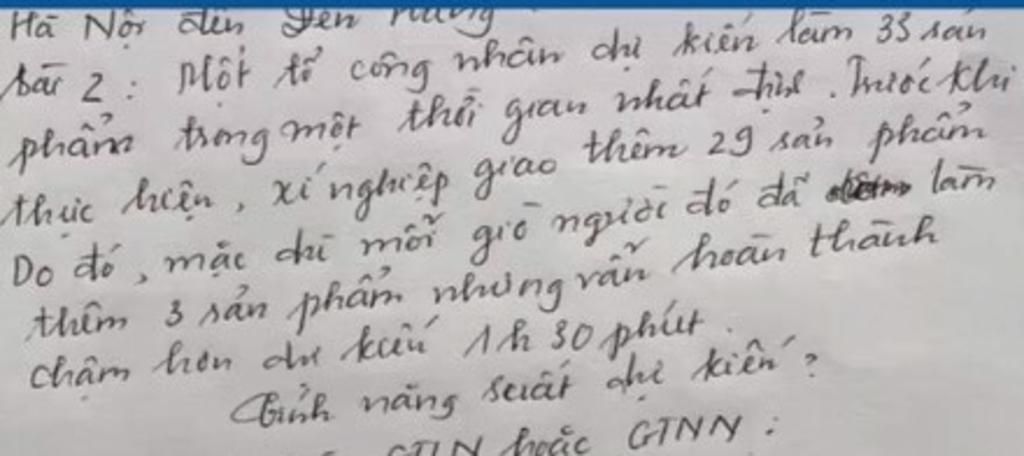 Hà Nội đến
Bài 2: Một tổ công nhân dự kiến làm 33 sản
phẩm trong một thời gian nhất định. Trước khi
thực hiện, xí nghiệp giao thêm 29 sản phẩm
Do đó, mặc dù mỗi giờ người đó đã làm
thêm 3 sản phẩm nhưng vẫn hoàn thành
chậm hơn dự kiến 1h 30 phút.
Tính năng suất dự kiến?
GTLN hoặc GTNN: